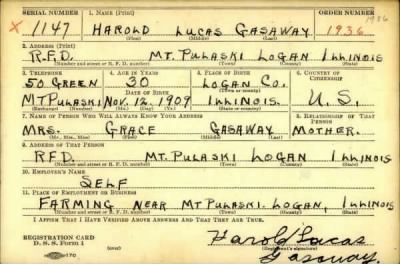 SERIAL NUMBER 1. NAME (Print) ORDER NUMBER
X 1147 HAROLD LUCAS GASAWAY 1936 1936
(First) (Middle) (Last)
2. ADDRESS (Print)
R.F.D. MT. PULASKI LOGAN ILLINOIS
(Number and street or R. F. D. number) (Town) (County) (State)
3. TELEPHONE 4. AGE IN YEARS 5. PLACE OF BIRTH 6. COUNTRY OF CITIZENSHIP
50 GREEN 30 LOGAN CO.
DATE OF BIRTH
MT PULASKI NOV. 12. 1909 ILLINOIS. U.S.
(Exchange) (Number) (Mo.) (Day) (Yr.) (State or country)
7. NAME OF PERSON WHO WILL ALWAYS KNOW YOUR ADDRESS 8. RELATIONSHIP OF THAT PERSON
MRS. GRACE GASAWAY MOTHER.
(Mr., Mrs., Miss) (First) (Middle) (Last)
9. ADDRESS OF THAT PERSON
RFD. MT. PULASKI LOGAN ILLINOIS
(Number and street or R. F. D. number) (Town) (County) (State)
10. EMPLOYER'S NAME
SELF
11. PLACE OF EMPLOYMENT OR BUSINESS
FARMING NEAR MT PULASKI. LOGAN, ILLINOIS
(Number and street or R. F. D. number) (Town) (County) (State)
I AFFIRM THAT I HAVE VERIFIED ABOVE ANSWERS AND THAT THEY ARE TRUE.
REGISTRATION CARD
D. S. S. Form 1
Harold Lucas
(Registrant's signature)
Gasaway.